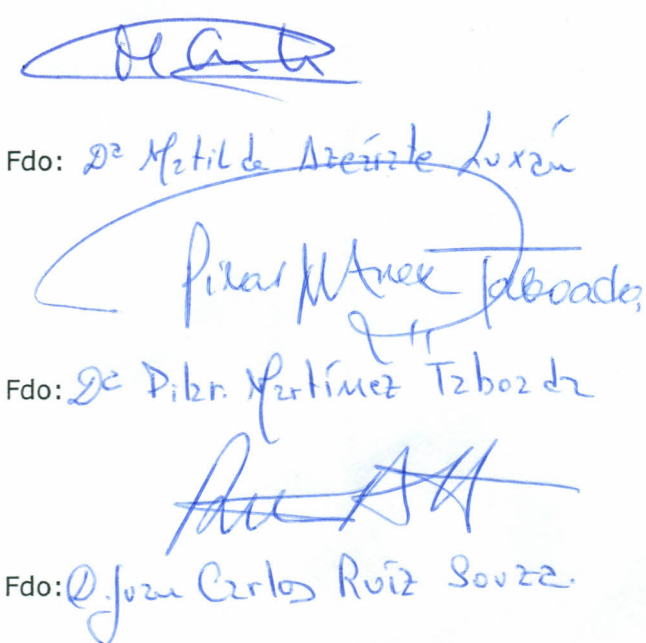 Fdo: Dª Matilde Azcárate Luxán
Pilar Mtnez Taboada
Fdo: Dª Pilar Martínez Taboada
Fdo: D. Juan Carlos Ruiz Souza.